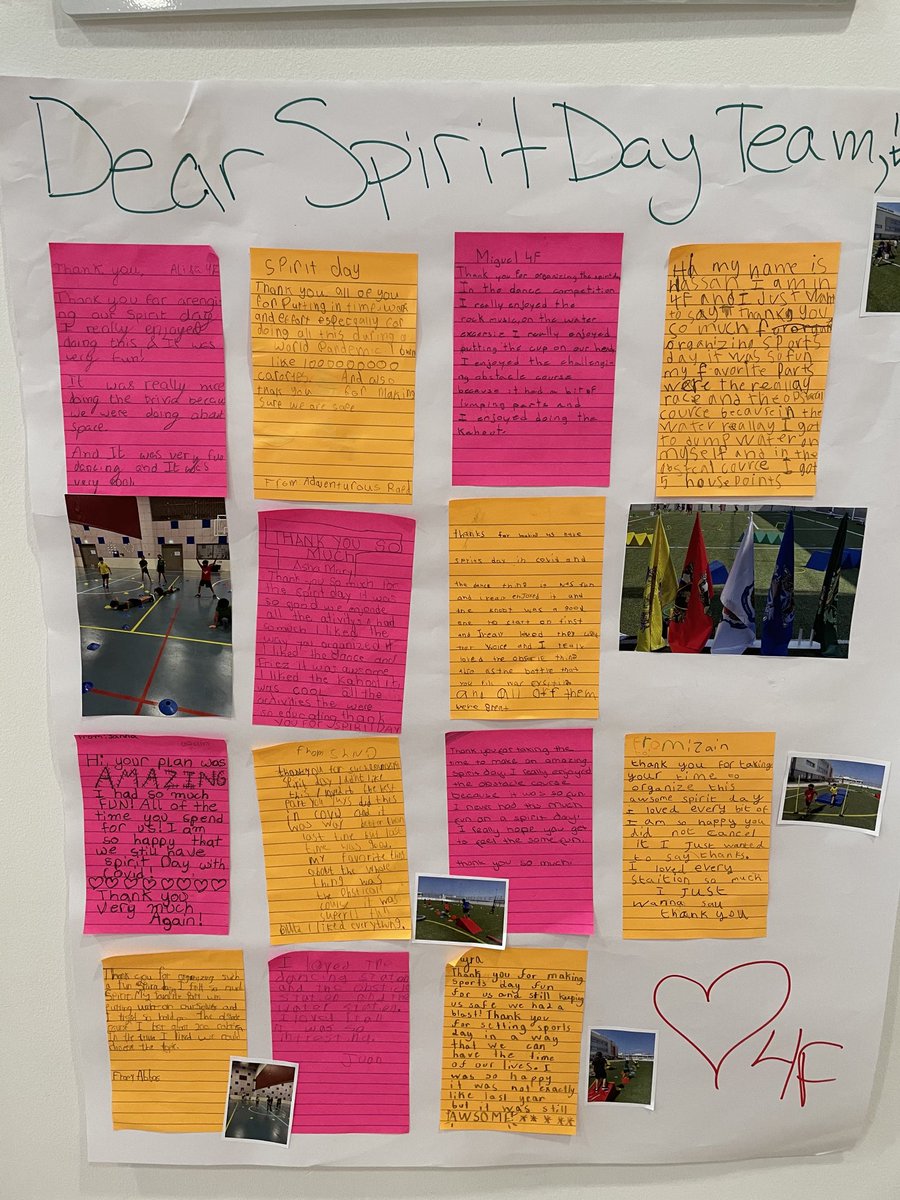 Dear Spirit Day Team,
Thank you, Alisa 4F
Thank you for
ing our Spirit day
I really enjoyed
doing this & It was
very fun!
It was really nice
doing the trivia becau
we were doing about
space.
And It was very fun
dancing and It was
very cool
Spirit day
Thank you all of you
for Putting in time, work
and effort especgally for
doing all this during a
World Pandemic I own
like 10000000000
And also
thak you for making
Sure we are safe
From Adventurous
Miguel 4F
Thank you for organizing the spirit day
In the dance competition
I really enjoyed the
rock music, on the water
I really enjoyed
putting the cup on our heads
I enjoyed the challeng-
ing obstacle course
because it had a bit of
jumping parts and
I enjoyed doing the
kahoot.
my name is
Hassan I am in
4F and I Just Want
to say thank you
so much for
organizing sports
day it was so fun
my favorite Parts
were the
race and the
cource because in the
Water I got
to dump water on
myself and in the
cource I got
5 house points
THANK YOU SO
MUCH
Asha Mary
Thank you so much for
the spirit day it was
so good we
all the
so much I liked the
way you organized it
I liked the dance and
it was awsome
I liked the kahoot it
was cool all the
activities the were
so educating thank
YOU FOR SPIRIT DAY
thanks for
day in covid and
the dance thing is
and I enjoyed it and
the was a good
one to start on first
and I loved they way
voice and I
loved the thing
also the bottle that
you was
and All off them
were great
Hi, your plan was
AMAZING
I had so much
FUN! All of the
time you spend
for us! I am
so happy that
we still have
spirit Day with
Covid!
Thank you
Very Much
Again!
From
thankyou for
Spirit day
this
you guys did this
in covid and it
was way better then
last time but last
time was good
my favorite
about the whole
thing was
the
course it was
super fun
I liked everything.
Thank you for taking the
time to make an amazing
Spirit day. I really enjoyed
the obstacle course
because it was so fun
I never had this much
fun on a spirit day!
I really hope you get
to feel the same fun.
thank you so much!
From: zain
thank you for taking
your time to
organize this
awsome spirit day
I loved every bit of
I am so happy you
did not cancel
it I Just wanted
to say thanks.
I loved every
staition so much
I Just
wanna say
thank you
Thank you for organizing such
a fun I felt so much
Spirit. My favorite Part was
putting water on ourselves and
The obstacle
course I
in the trivia I liked we could
choose the topic.
From Abbas
I loved The
dancing station
and the
and the
water station.
I loved
it was so
Juan
Thank you for making
sports day fun
for us and still keeping
us safe we had a
blast! Thank you
for setting sports
day in a way
that we can
have the time
of our lives. I
was so happy
it was not exactly
like last year
but it was still
AWSOME!
4F